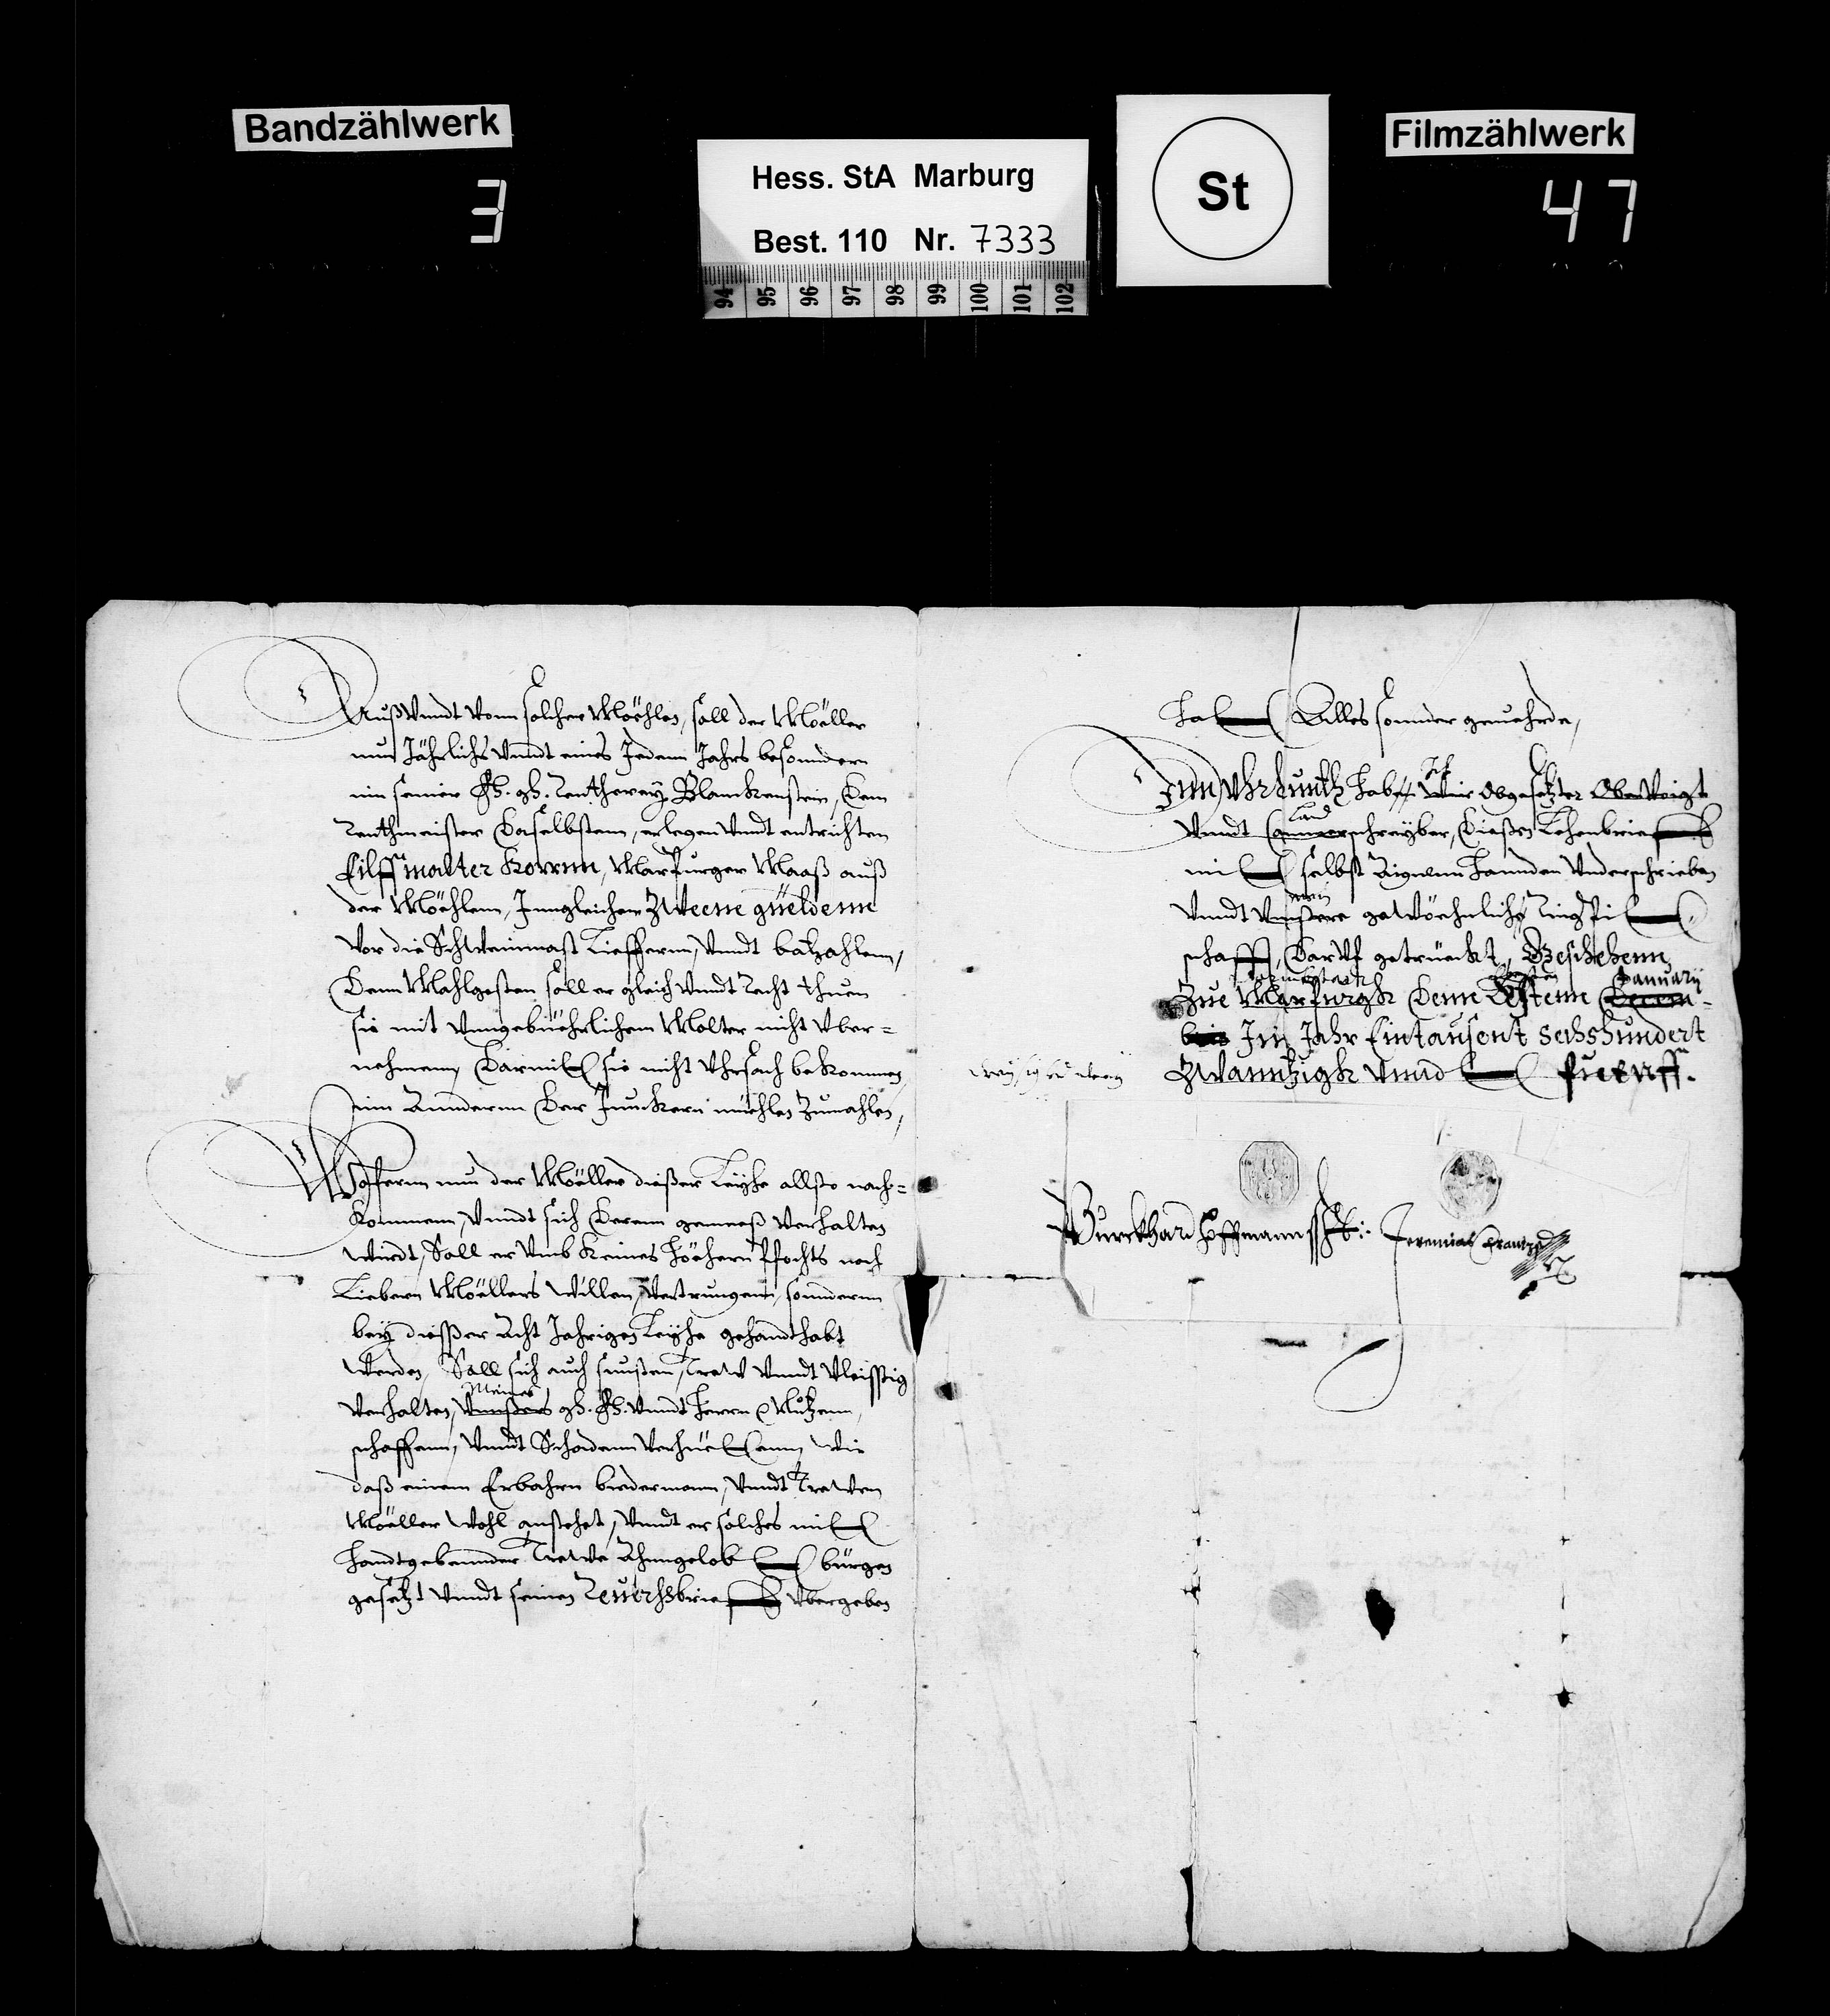 Bandzählwerk
3
Hess. StA Marburg
Best. 110 Nr. 7333
94 95 96 97 98 99 100 101 102
St
Filmzählwerk
47
Auß Vnndt vonn solcher Möehlen, soll der Möeller
nun Jährlichs vnndt eines Jedenn Jahrs besonndern
inn seiner Fh. gh. Renthereÿ Blanckenstein, Dem
Renthmeister Daselbstenn, erlegen vnndt entrichten
Eilff malter Kornn, Marpurger Maaß auß
der Möehlenn, Jnngleichem Zweene güeldenn
vor die Schweinmast Lieffernn, vnndt bezahlenn,
Denn Mahlgesten soll er gleich vnndt Recht thuen
sie mit vnngebüehrlichem Molter nicht Vber-
nehmenn, Darmit sie nicht Vhrsach bekommen
inn Anndernn Der Junckern müehlen Zumahlen,
Wofernn nun der Möeller dießer Leÿhe allso nach-
kommenn, vnndt sich Derenn gemeeß verhalten
wirdt, Soll er vmb keines höchern Pfachts noch
Liebern Möellers willen, verdrungenn, sonndernn
beÿ diesser Acht Jahrigen Leÿhe gehandthabt
werden, Soll sich auch sunsten, Trew vnndt vleissig
Meines
verhalten, Vnnßers gh. Fh. vnndt Herrn Nutzenn,
schaffenn, vnndt Schadenn verhüetenn, wie
daß einem Erbahrn biedermann, vnndt Trewen
Möeller wohl anstehet, vnndt er solches mit
handtgebennder Trewe Ahnngelobt bürgen
gesetzt vnndt seinen Reuerßbrieff vbergeben
hatt Alles sonnder geuehrde,
Ich
Inn Vhrkunth hab Wir Obgesetzter Ober Voigt
Land
vnndt Cammerschreÿber, Dießen Lehenbrieff
mitt selbst Aignenn hannden Vnderschrieben
mein
vnndt Vnnßere gewöehnlich Ringpitt-
schafft, Darvf getrüeckt, Geschehenn
Januarÿ
Zue Marpurgk Denn Ersten Decem-
bris Im Jahr Eintausent Sechshundert
Zwanntzigk vnnd fuenff.
Burckhard Hoffmann sst: Jeremias